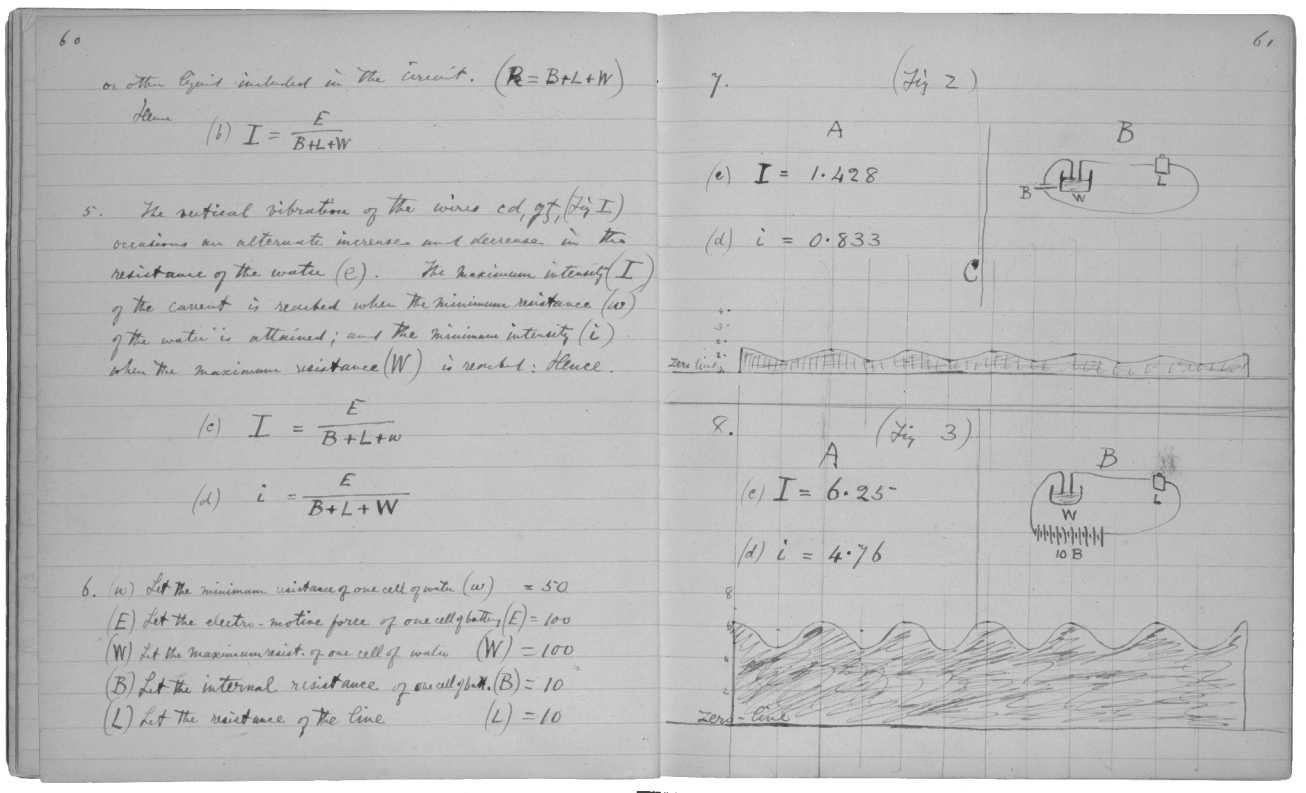 60
or other liquid included in the circuit. (R = B+L+W)
Hence
(b) I = E / B+L+W
5. The vertical vibration of the wires cd, gf, (Fig I.)
occasions an alternate increase and decrease in the
resistance of the water (e). The maximum intensity (I)
of the current is reached when the minimum resistance (w)
of the water is attained; and the minimum intensity (i)
when the maximum resistance (W) is reached: Hence.
(c) I = E / B+L+w
(d) i = E / B+L+W
6. (w) Let the minimum resistance of one cell of water (w) = 50
(E) Let the electro-motive force of one cell of battery (E) = 100
(W) Let the maximum resist. of one cell of water (W) = 100
(B) Let the internal resistance of one cell of batt. (B) = 10
(L) Let the resistance of the line (L) = 10
61
7. (Fig 2)
A
B
(c) I = 1.428
B
W
L
(d) i = 0.833
C
4
3
2
Zero line
8. (Fig 3)
A
B
(c) I = 6.25
W
L
10 B
(d) i = 4.76
8
6
4
2
Zero-line